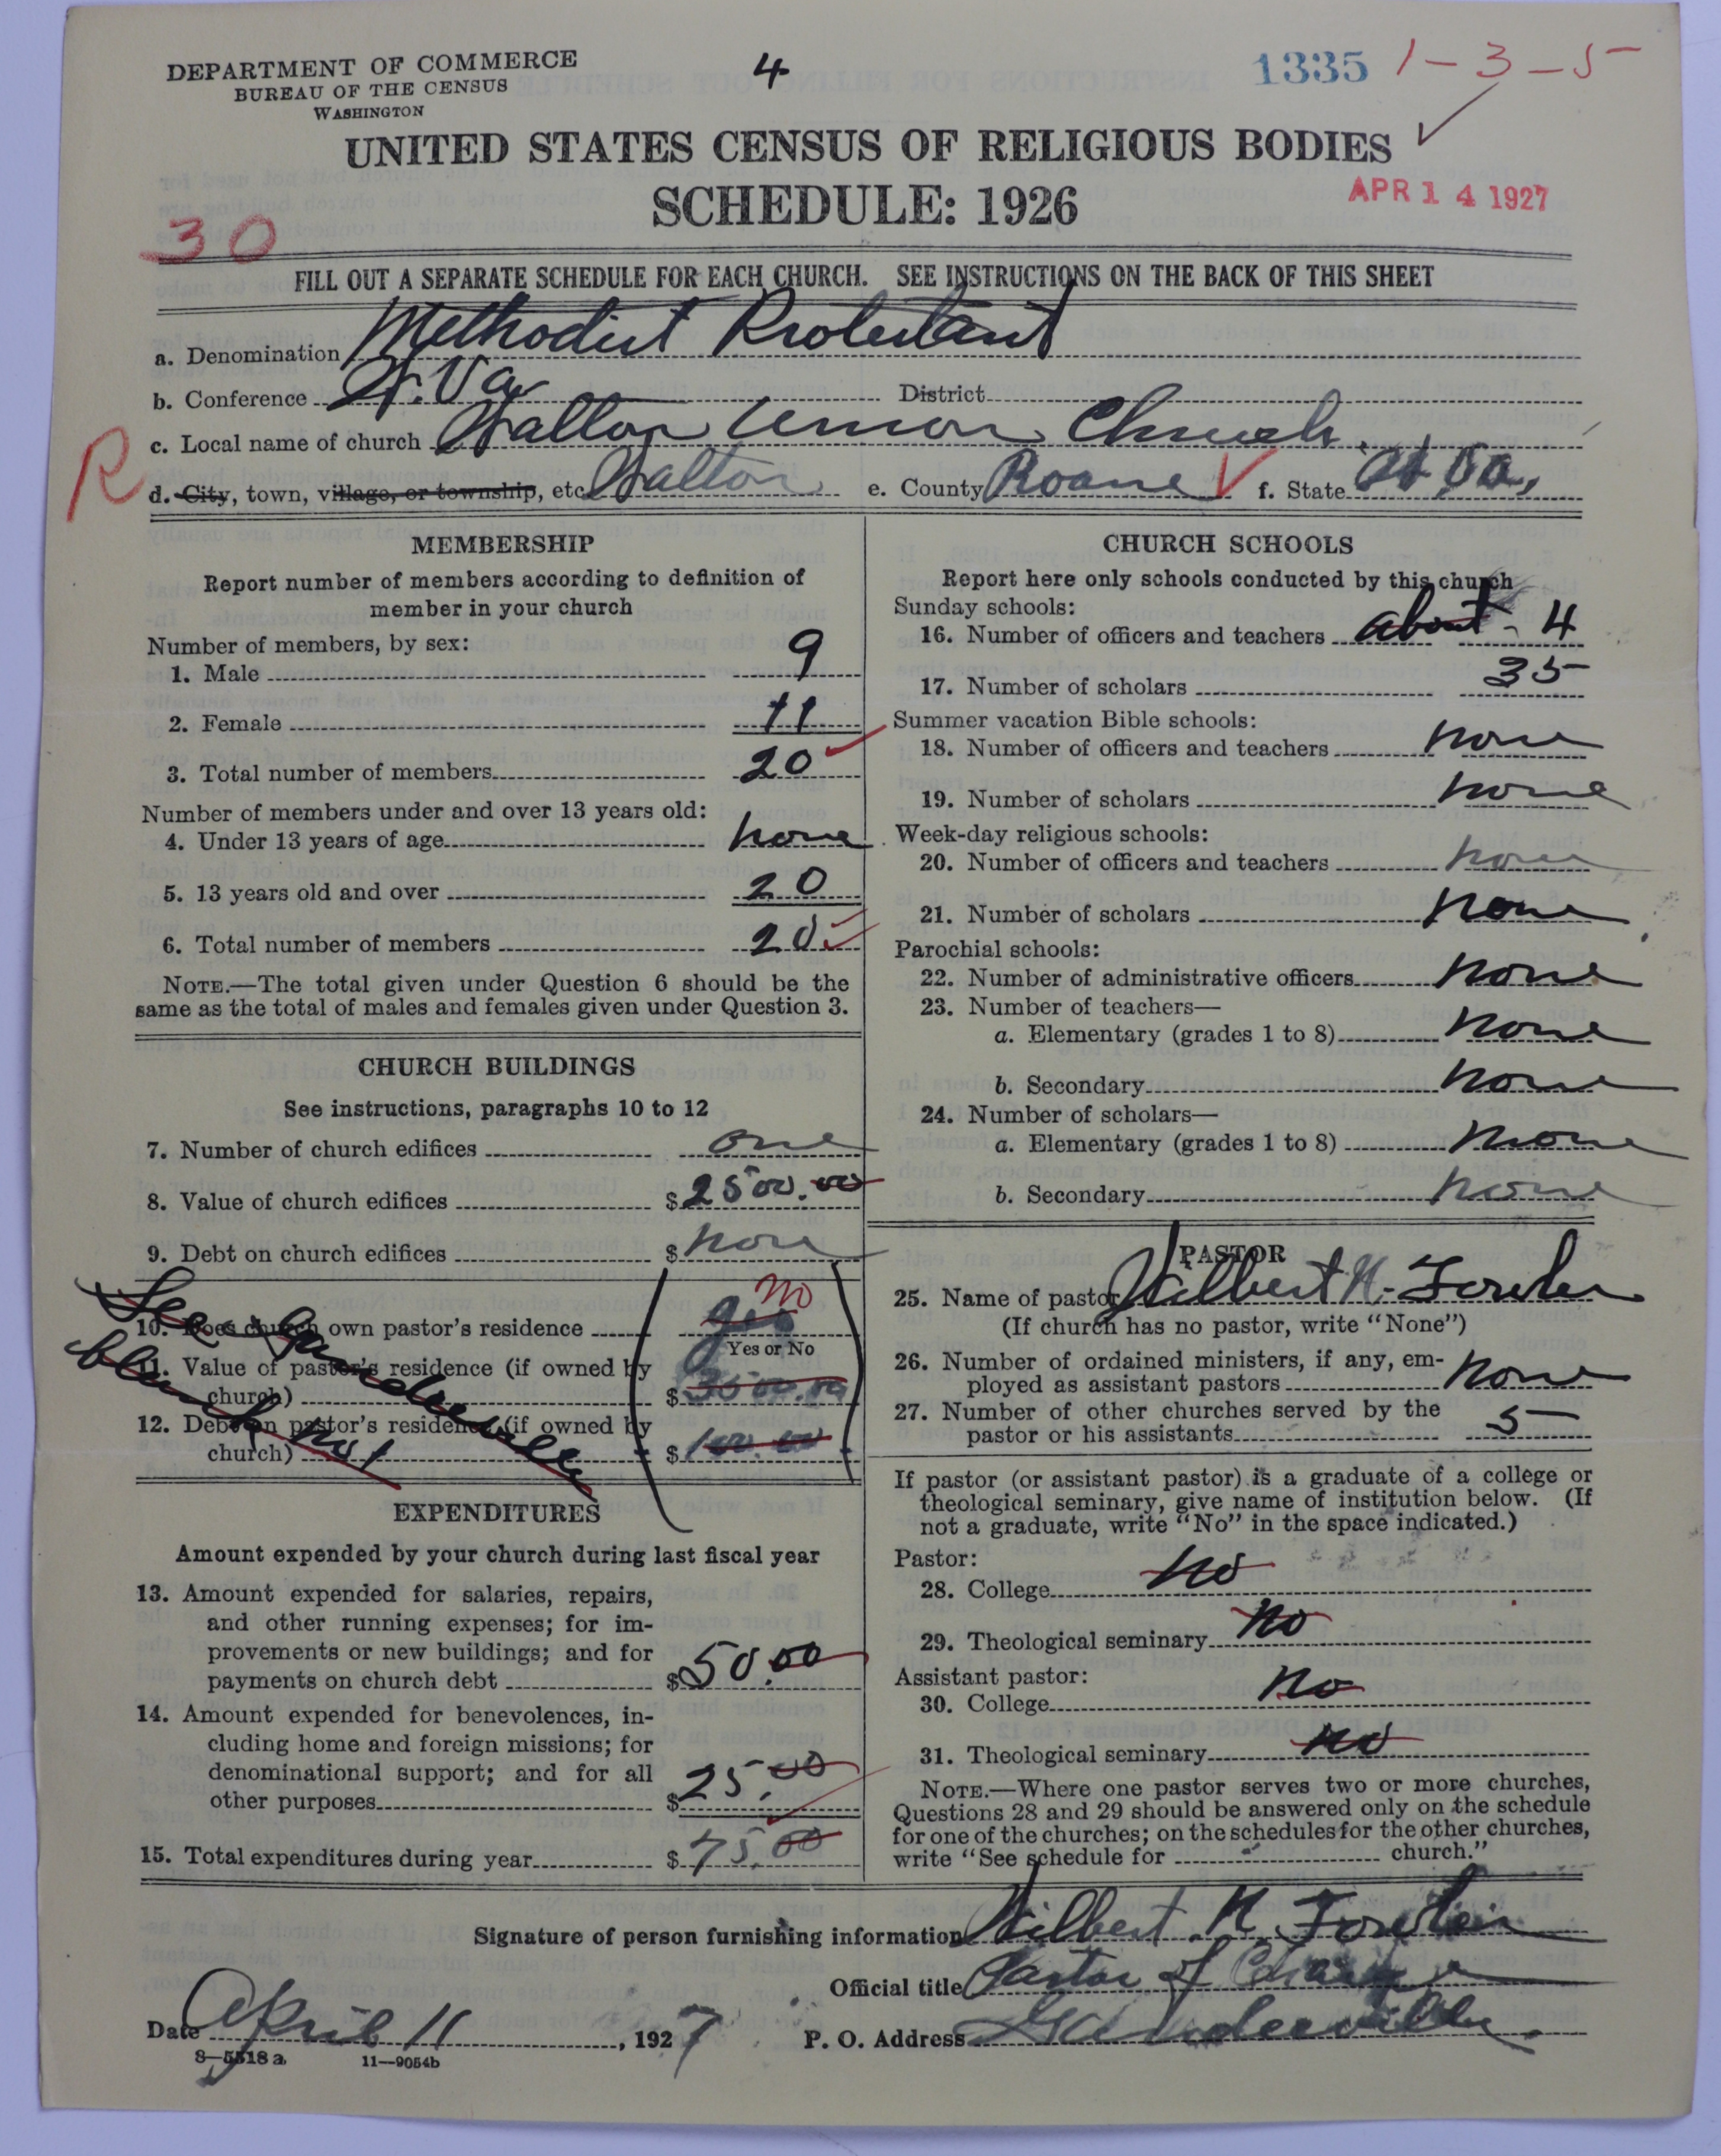 DEPARTMENT OF COMMERCE
BUREAU OF THE CENSUS
WASHINGTON
4
1335
1-3-5
UNITED STATES CENSUS OF RELIGIOUS BODIES
SCHEDULE: 1926
APR 14 1927
30
FILL OUT A SEPARATE SCHEDULE FOR EACH CHURCH. SEE INSTRUCTIONS ON THE BACK OF THIS SHEET
a. Denomination Methodist Protestant
b. Conference W. Va District
c. Local name of church Walton Union Church
R
d. City, town, village, or township, etc. Walton e. County Roane f. State W. Va.
MEMBERSHIP
Report number of members according to definition of
member in your church
Number of members, by sex:
1. Male 9
2. Female 11
3. Total number of members 20
Number of members under and over 13 years old:
4. Under 13 years of age none
5. 13 years old and over 20
6. Total number of members 20
NOTE.—The total given under Question 6 should be the
same as the total of males and females given under Question 3.
CHURCH BUILDINGS
See instructions, paragraphs 10 to 12
7. Number of church edifices one
8. Value of church edifices $2500.00
9. Debt on church edifices $none
See Ganderville
blank no 1
10. Does church own pastor's residence yes no
Yes or No
11. Value of pastor's residence (if owned by
church) $
12. Debt on pastor's residence (if owned by
church) $100.00
EXPENDITURES
Amount expended by your church during last fiscal year
13. Amount expended for salaries, repairs,
and other running expenses; for im-
provements or new buildings; and for
payments on church debt $50.00
14. Amount expended for benevolences, in-
cluding home and foreign missions; for
denominational support; and for all
other purposes $25.00
15. Total expenditures during year $75.00
CHURCH SCHOOLS
Report here only schools conducted by this church
Sunday schools:
16. Number of officers and teachers about - 4
17. Number of scholars 35
Summer vacation Bible schools:
18. Number of officers and teachers none
19. Number of scholars none
Week-day religious schools:
20. Number of officers and teachers none
21. Number of scholars none
Parochial schools:
22. Number of administrative officers none
23. Number of teachers—
a. Elementary (grades 1 to 8) none
b. Secondary none
24. Number of scholars—
a. Elementary (grades 1 to 8) none
b. Secondary none
PASTOR
25. Name of pastor Wilbert N. Fowler
(If church has no pastor, write "None")
26. Number of ordained ministers, if any, em-
ployed as assistant pastors none
27. Number of other churches served by the
pastor or his assistants 5
If pastor (or assistant pastor) is a graduate of a college or
theological seminary, give name of institution below. (If
not a graduate, write "No" in the space indicated.)
Pastor:
28. College no
29. Theological seminary no
Assistant pastor:
30. College no
31. Theological seminary no
NOTE.—Where one pastor serves two or more churches,
Questions 28 and 29 should be answered only on the schedule
for one of the churches; on the schedules for the other churches,
write "See schedule for church."
Signature of person furnishing information Wilbert N. Fowler
Official title Pastor of Charge
Date April 11, 1927 P. O. Address Ganderville
8—5518 a 11—9054b